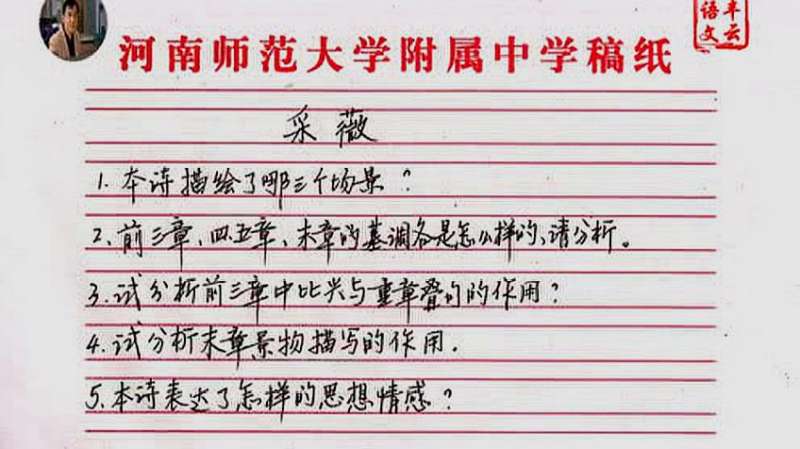 河南师范大学附属中学稿纸
语文
丰云
采薇
1. 本诗描绘了哪三个场景？
2. 前三章、四五章、末章的基调各是怎么样的、请分析。
3. 试分析前三章中比兴与重章叠句的作用？
4. 试分析末章景物描写的作用.
5. 本诗表达了怎样的思想情感？